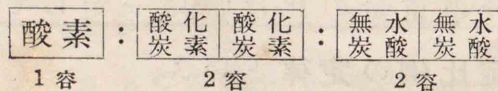 酸素 : 酸化炭素 酸化炭素 : 無水炭酸 無水炭酸
1容 2容 2容